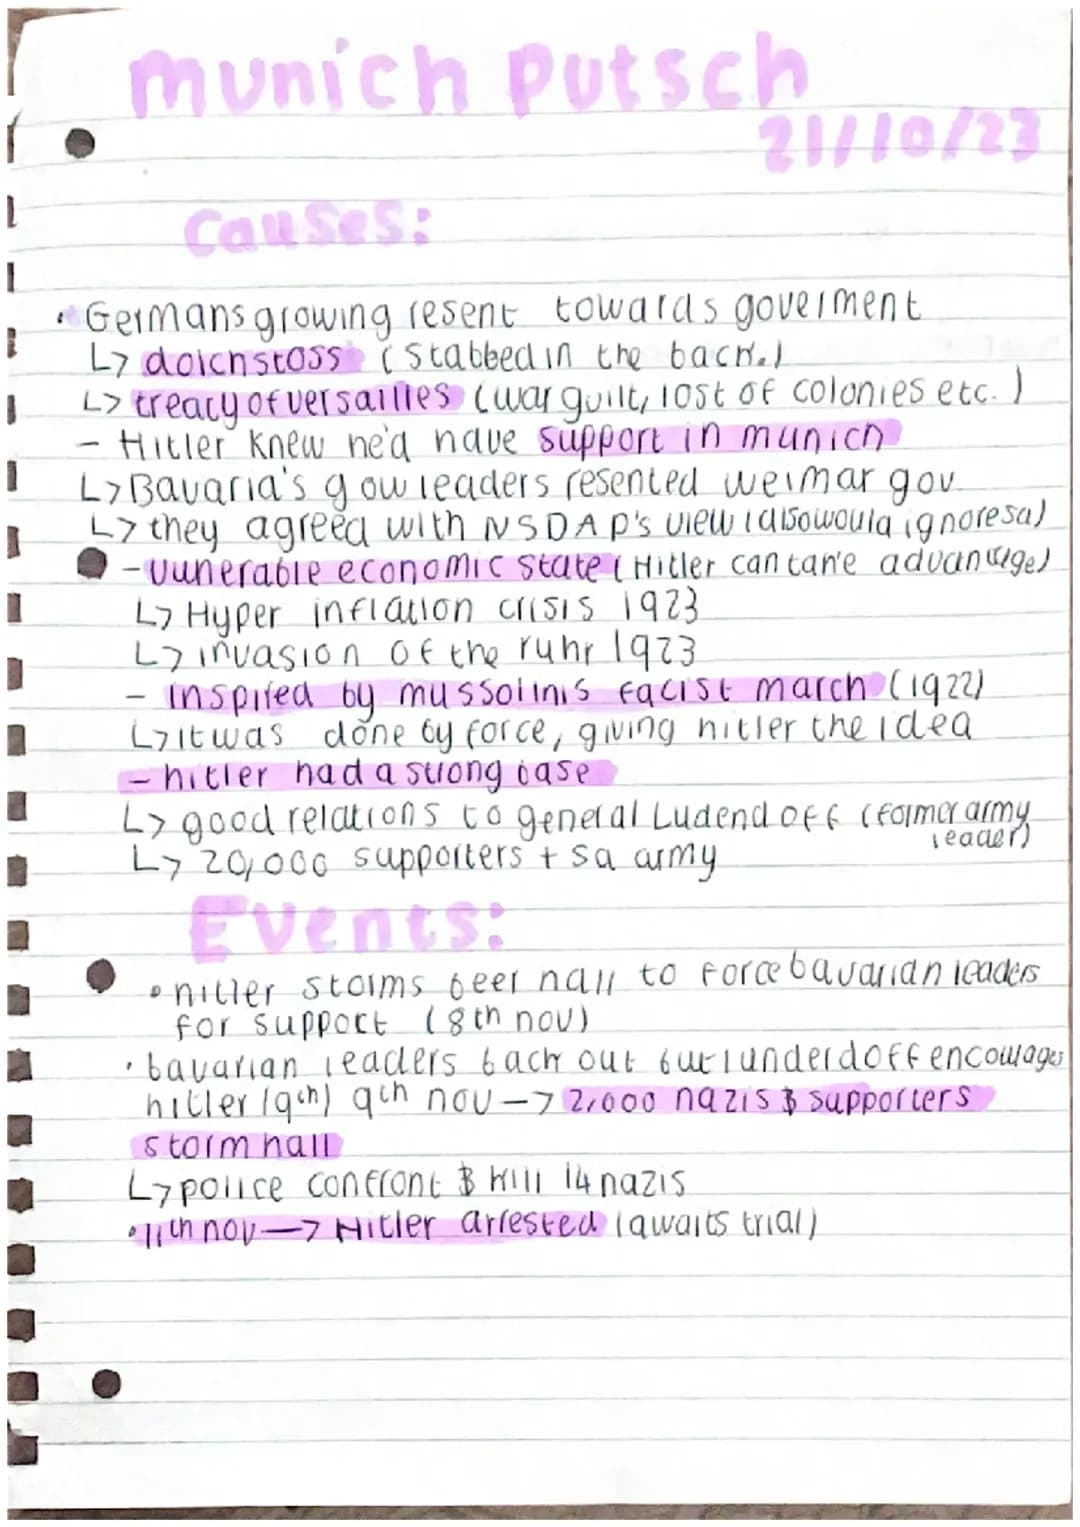 munich putsch
21/10/23
Causes:
• Germans growing resent towards goverment
↳ dolchstoss (stabbed in the back.)
↳ treaty of versailles (war guilt, lost of colonies etc.)
- Hitler knew he'd have support in munich
↳ Bavaria's gov leaders resented weimar gov
↳ they agreed with NSDAP's view (also would ignore sa)
- vunerable economic state (Hitler can take advantage)
↳ Hyper inflation crisis 1923
↳ invasion of the ruhr 1923
- inspired by mussolinis facist march (1922)
↳ it was done by force, giving hitler the idea
- hitler had a strong base
↳ good relations to general Ludendoff (former army leader)
↳ 20,000 supporters + sa army
Events:
• hitler storms beer hall to force bavarian leaders
for support (8th nov)
• bavarian leaders back out but lunderdoff encourages
hitler (9th) 9th nov → 2,000 nazis & supporters
storm hall
↳ police confront & kill 14 nazis
• 11th nov → Hitler arrested (awaits trial)